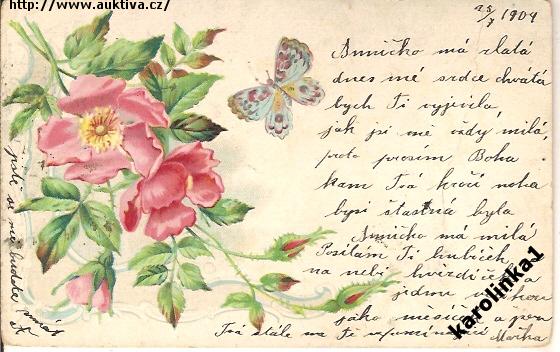 http://www.auktiva.cz/
25/7 1904
Aničko má zlatá
dnes mé srdce chvátá
bych Ti vyjevila,
jak jsi mě vždy milá,
proto prosím Boha
kam Tvá kročí noha
bysi šťastná byla
Aničko má milá
Posílám Ti hubiček
na nebi hvězdiček a
jednu
jako měsíc a
Tvá stále na Tě vzpomínající Mařka
jestli se mě budde
karolinka1